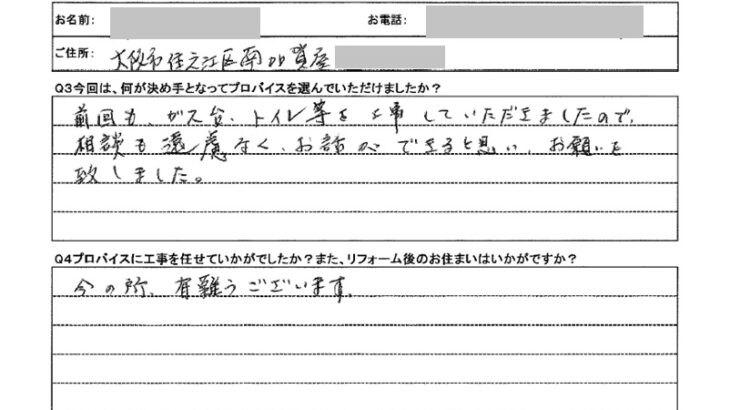 お名前: お電話:
ご住所: 大阪市住之江区南加賀屋
Q3今回は、何が決め手となってプロバイスを選んでいただけましたか?
前回も、ガス台、トイレ等を工事していただきましたので、
相談も遠慮なく、お話ができると思い、お願いを
致しました。
Q4プロバイスに工事を任せていかがでしたか?また、リフォーム後のお住まいはいかがですか?
今の所、有難うございます。